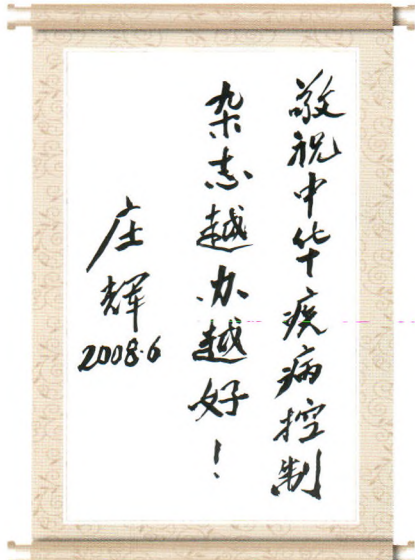 敬祝中华疾病控制
杂志越办越好！
庄辉
2008.6